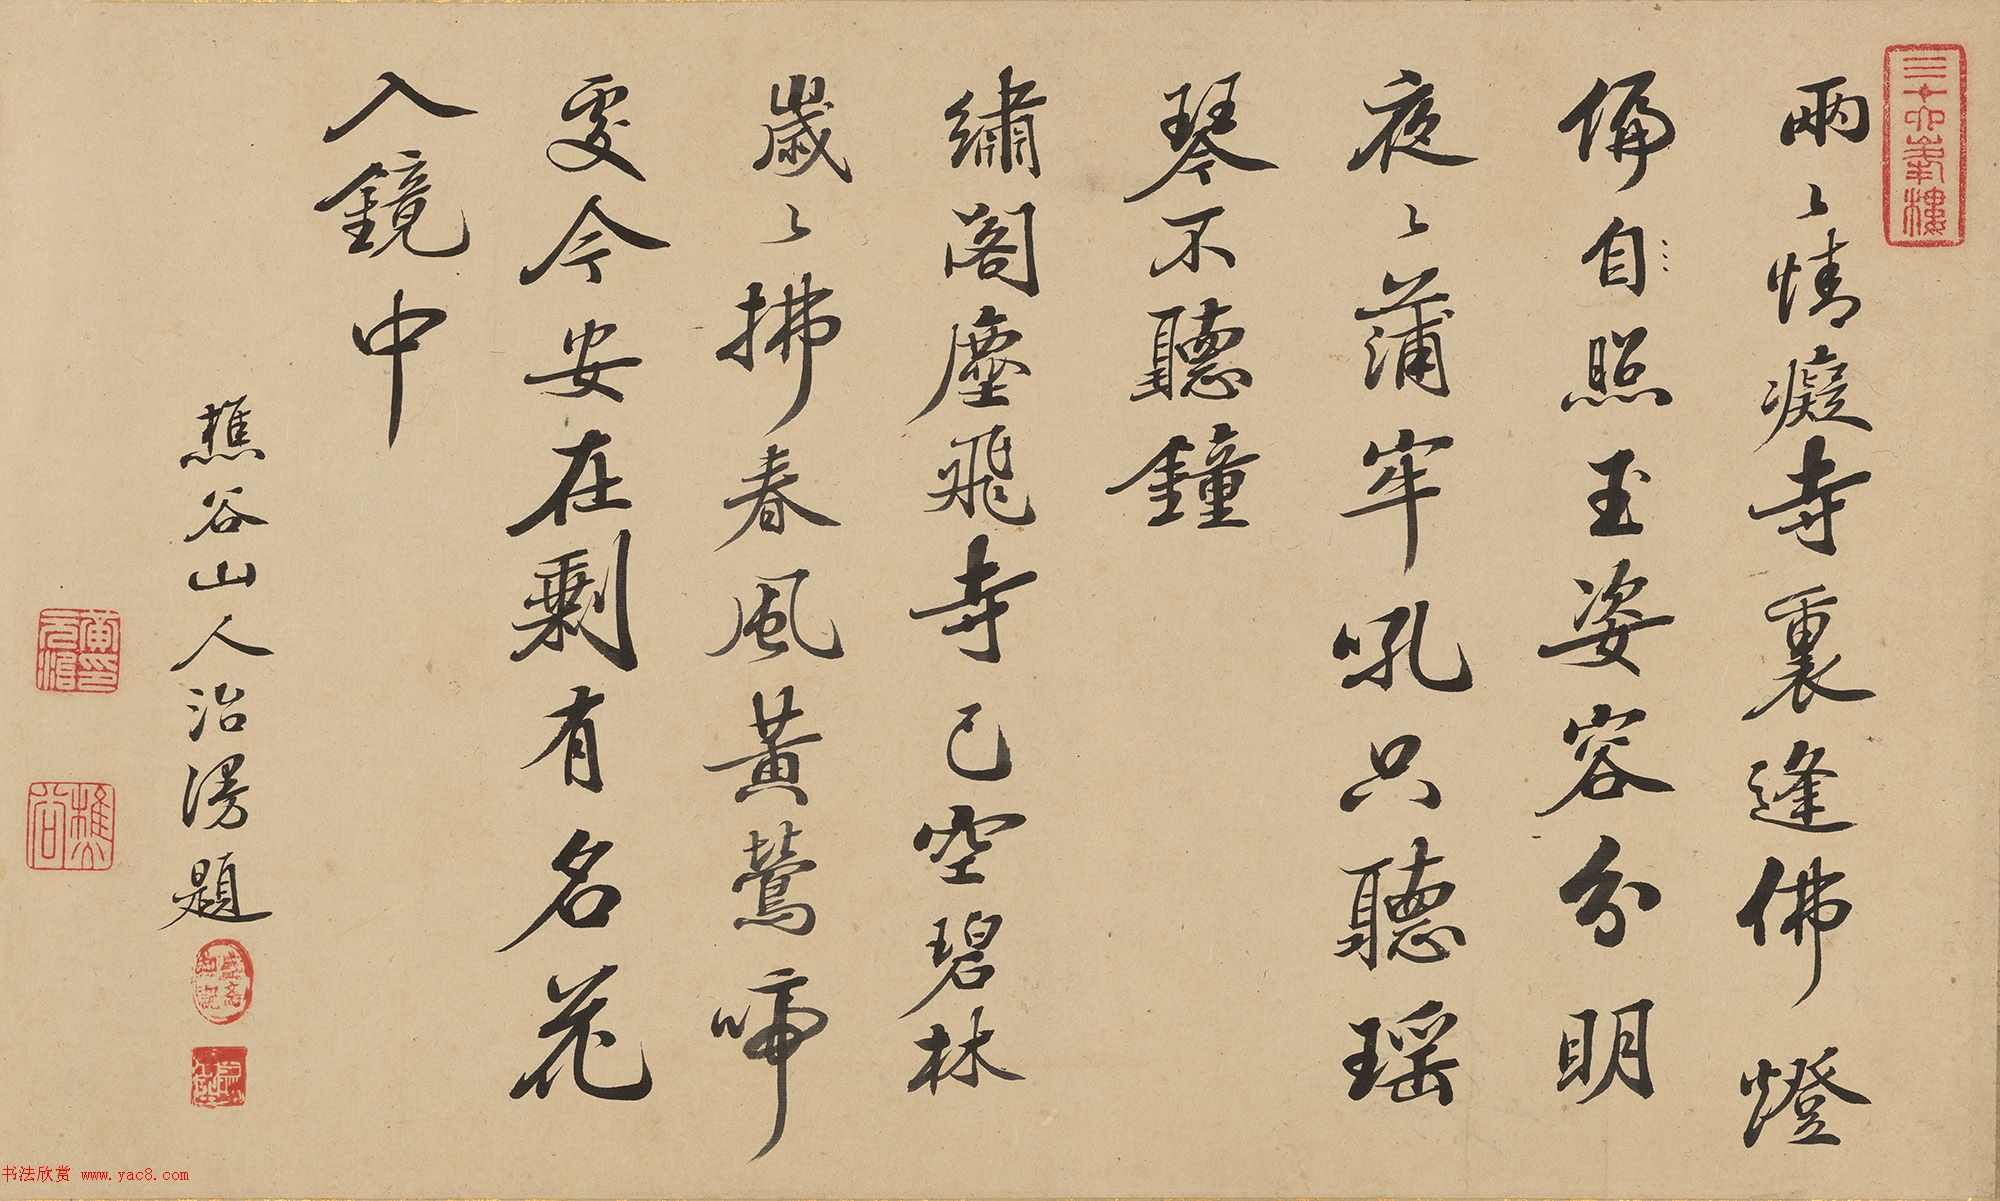 三十六峯樓
兩〻情癡寺裏逢佛燈
偏自照玉姿容分明
夜〻蒲牢吼只聽瑶
琴不聽鐘
繡閣塵飛寺已空碧林
歲〻拂春風黃鶯啼
處今安在剩有名花
入鏡中
樵谷山人治漫題
樵谷
书法欣赏 www.yac8.com